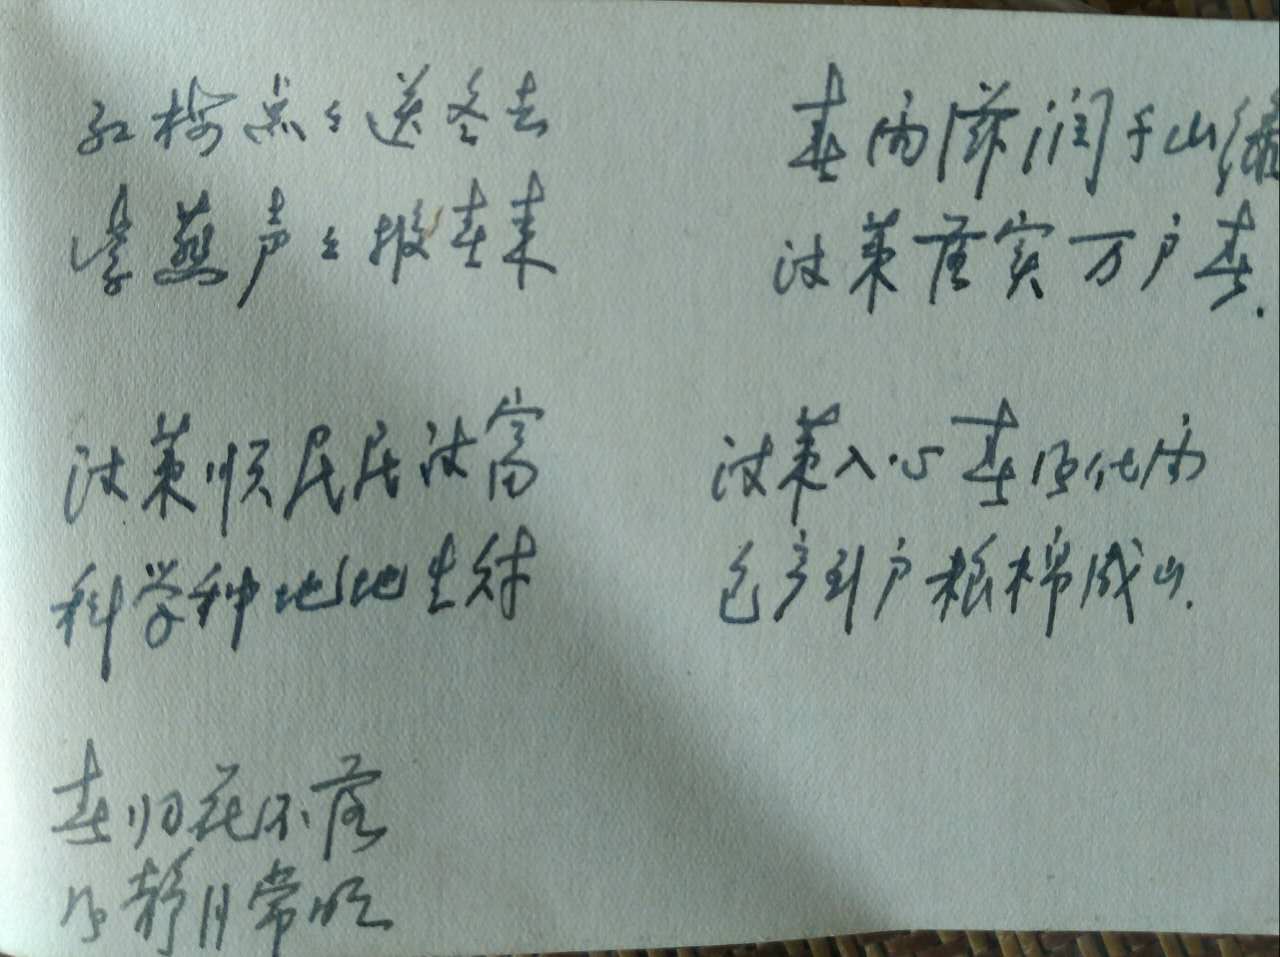 红梅点点送冬去
紫燕声声报春来
春雨滋润千山绿
政策落实万户春.
政策顺民民致富
科学种地地生财
政策入心春风化雨
包产到户粮棉成山.
春归花不落
风静月常明